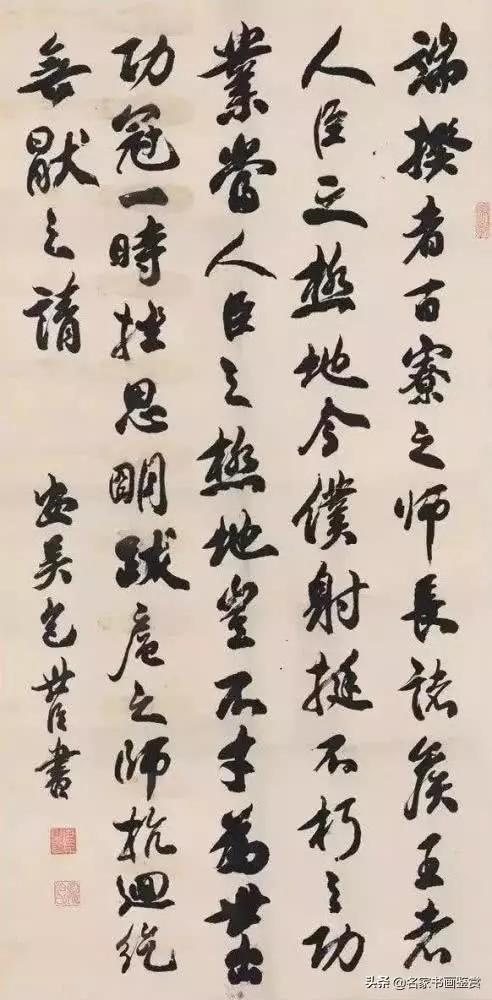 端揆者百寮之師長諸侯王者
人臣之極地今僕射挺不朽之功
業當人臣之極地豈不才為世出
功冠一時挫思明跋扈之師抗迴紇
無猒之請
安吳包世臣書
头条 @名家书画鉴赏